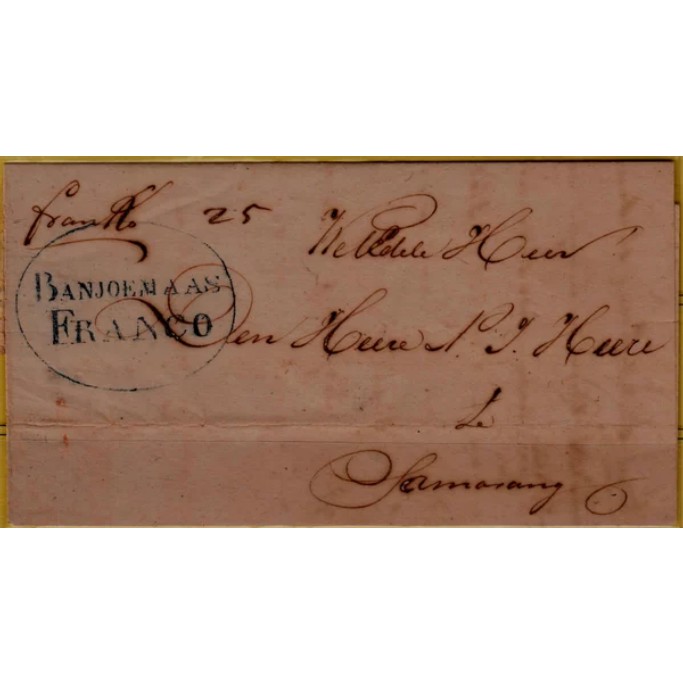 franko 25
WelEdele Heer
BANJOEMAAS
FRANCO
Den Heere N. J. Heere
te
Samarang